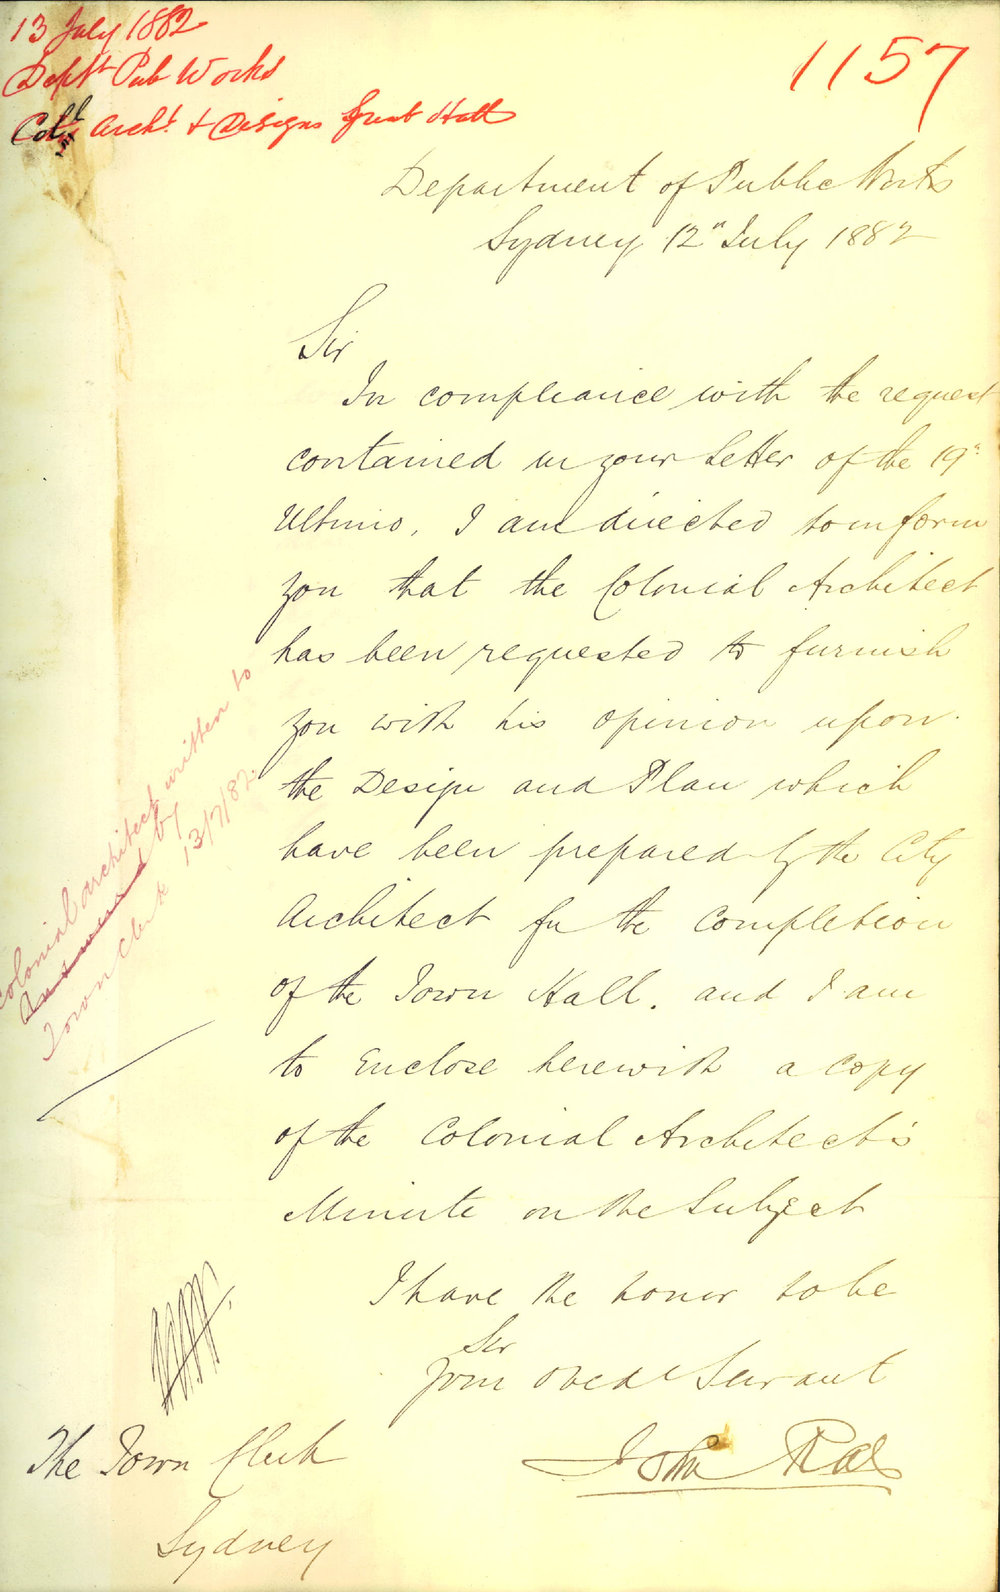 13 July 1882
Dept Pub Works
Coll Archt & Designs Great Hall
1157
Department of Public Works
Sydney 12th July 1882
Sir
In compliance with the request
contained in your letter of the 19th
Ultimo, I am directed to inform
you that the Colonial Architect
has been requested to furnish
you with his opinion upon
the Design and Plan which
have been prepared by the City
Architect for the Completion
of the Town Hall. and I am
to Enclose herewith a copy
of the Colonial Architect's
Minute on the Subject
I have the honor to be
Sir
Your Obed Servant
John Rae
The Town Clerk
Sydney
Colonial architect written to
by
Town Clerk 13/7/82.